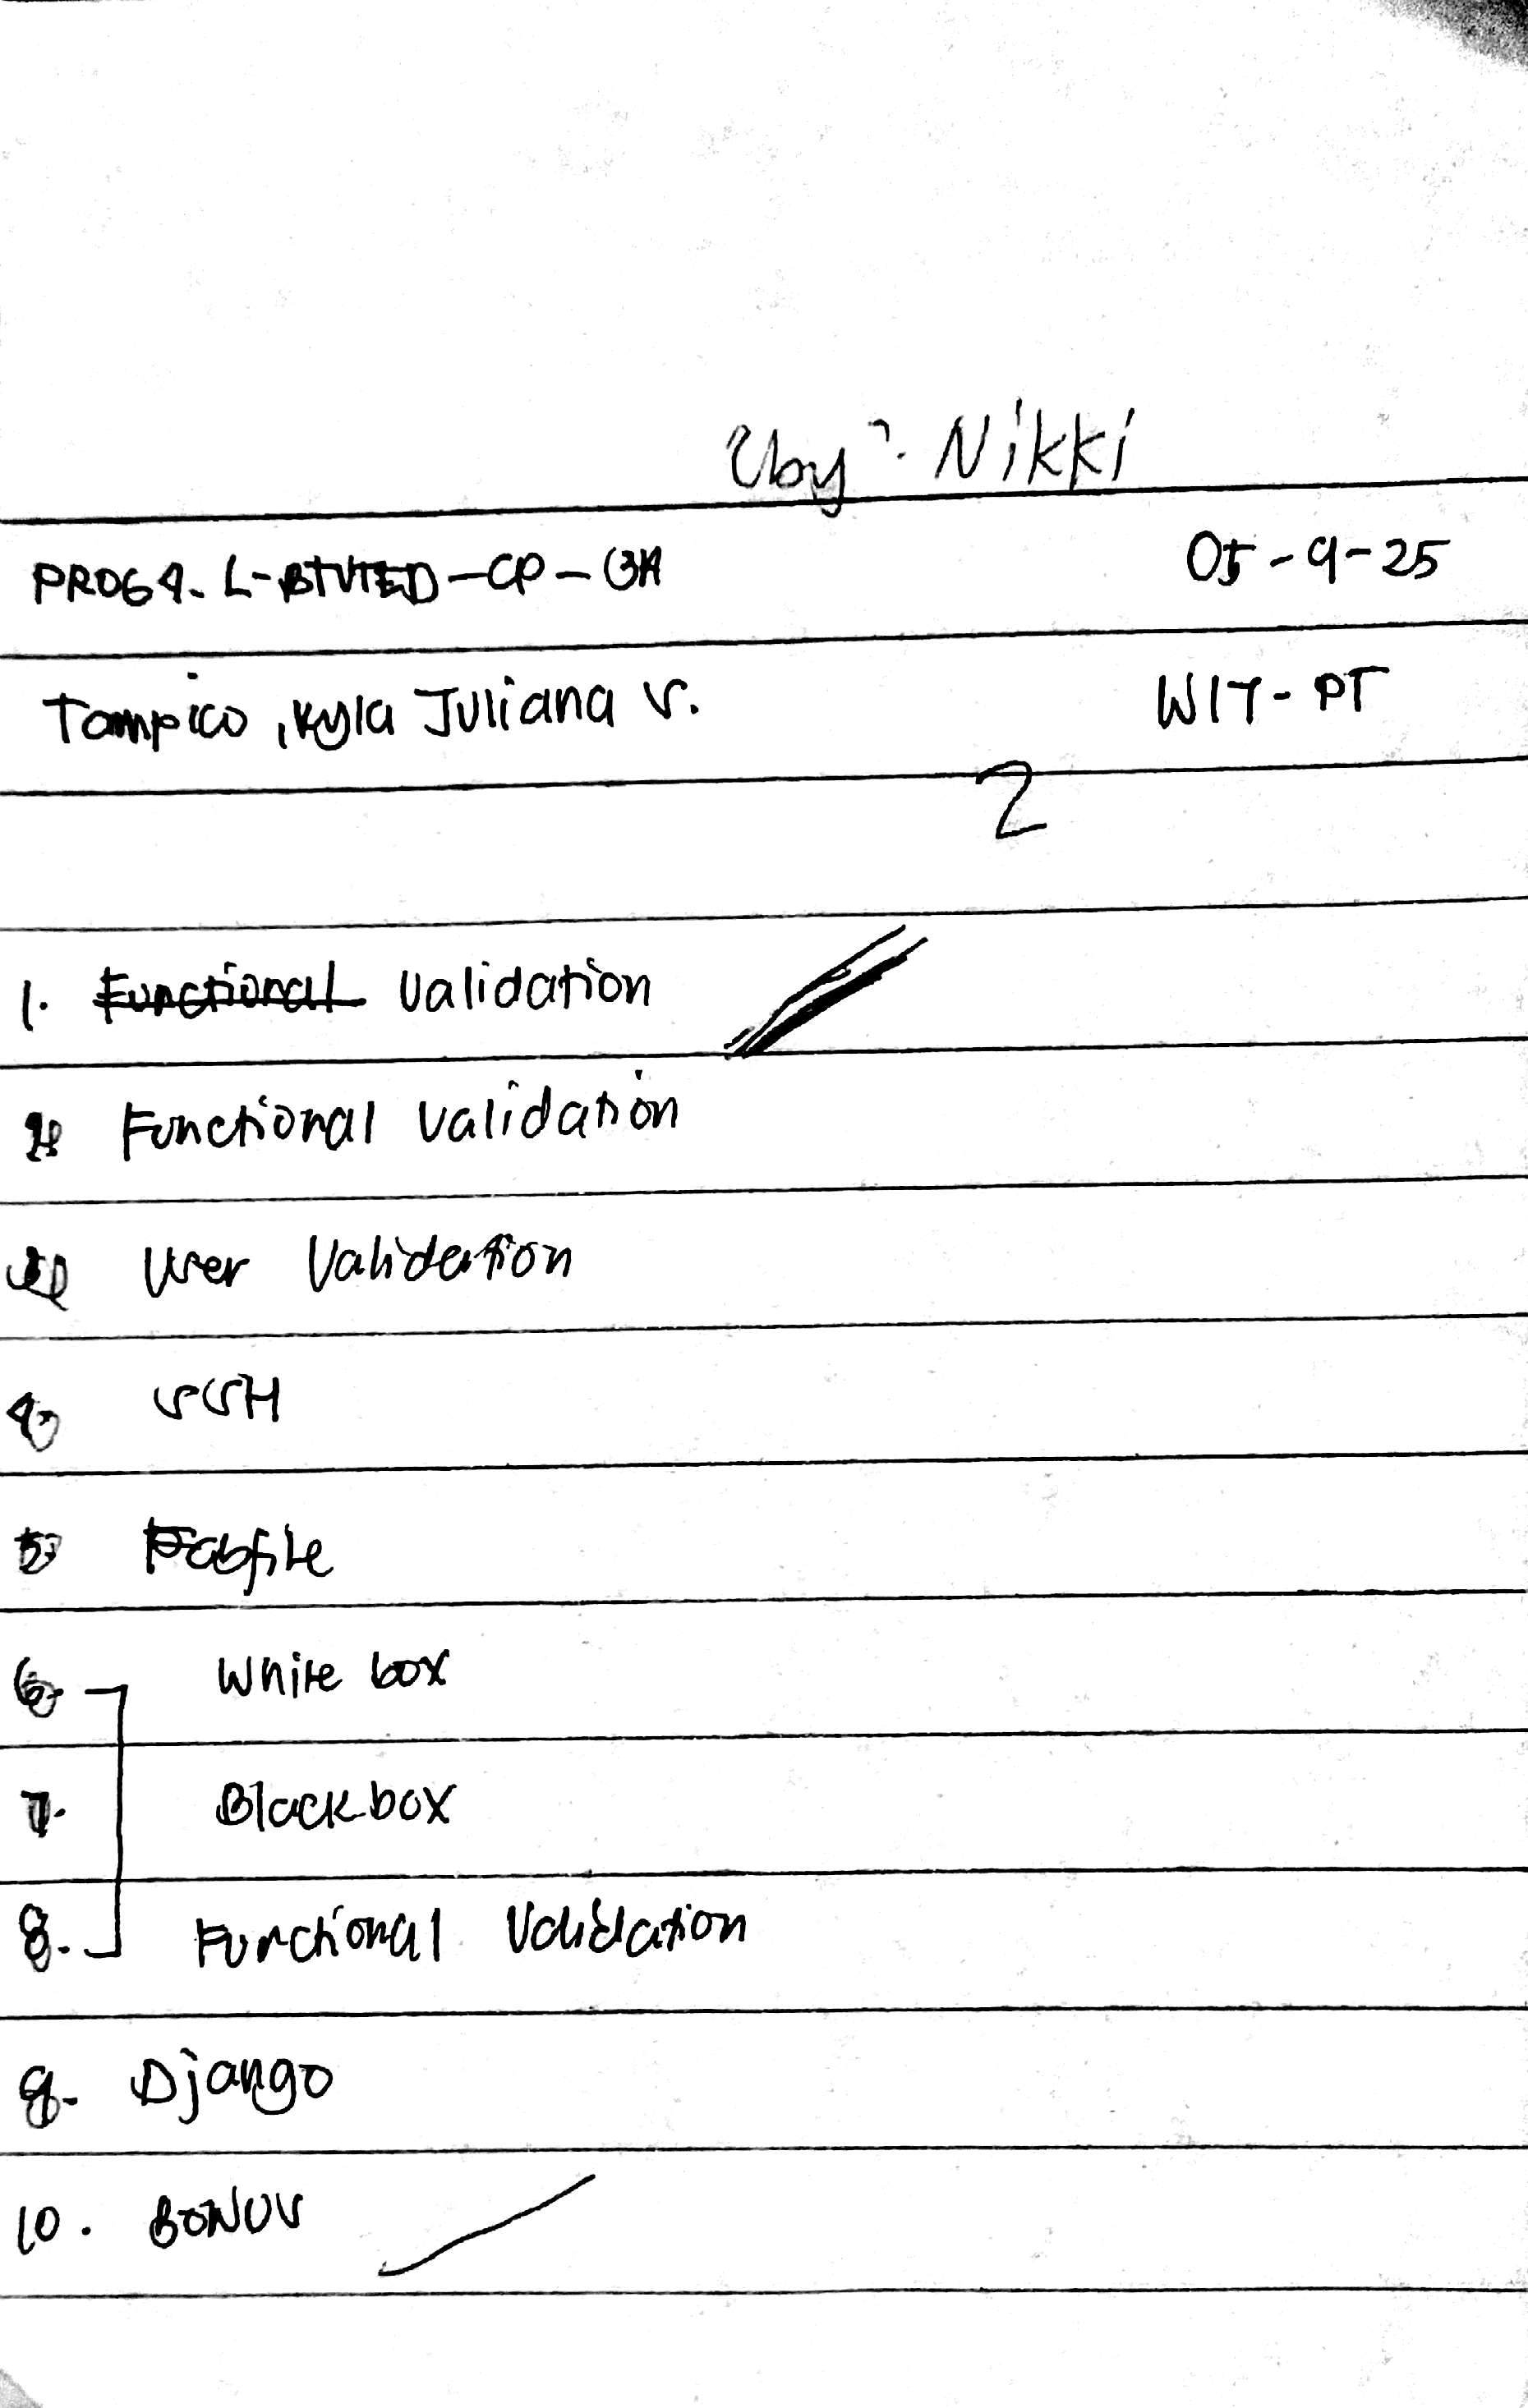 by: Nikki
PROG4-L-BTVTED-CP-3A 05-9-25
Tampico, Kyla Juliana S. WIT-PT
2
1. Functional Validation
2. Functional Validation
3. User Validation
4. SSH
5. Fabfile
6. White box
7. Blackbox
8. Functional Validation
9. Django
10. BONUS